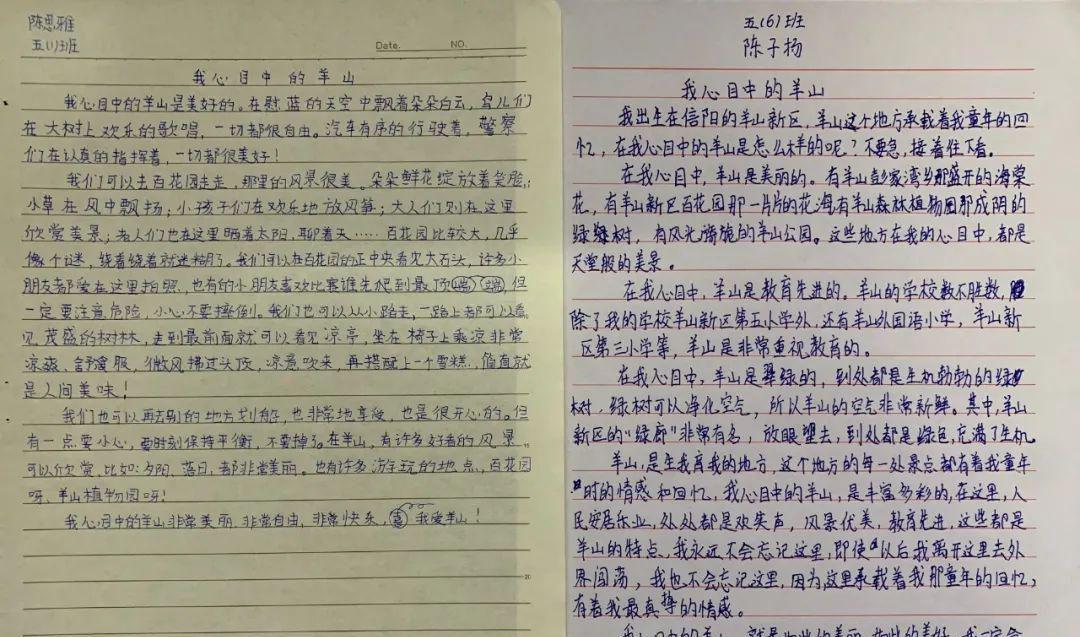 陈思雅
五(1)班
Date.
NO.
我心目中的羊山
我心目中的羊山是美好的。在慰蓝的天空中飘着朵朵白云，鸟儿们
在大树上欢乐的歌唱，一切都很自由。汽车有序的行驶着，警察
们在认真的指挥着，一切都很美好！
我们可以去百花园走走，那里的风景很美。朵朵鲜花绽放着笑脸；
小草在风中飘扬；小孩子们在欢乐地放风筝；大人们则在这里
欣赏美景；老人们也在这里晒着太阳，聊着天……百花园比较大，几乎
像个谜，绕着绕着就迷糊了。我们可以在百花园的正中央看见大石头，许多小
朋友都爱在这里拍照，也有的小朋友喜欢比赛谁先爬到最顶端，但
一定要注意危险，小心不要摔倒。我们也可以从小路走，一路上都可以看
见茂盛的树林，走到最前面就可以看见凉亭，坐在椅子上乘凉非常
凉爽、舒服，微风拂过头顶，凉意吹来，再搭配上一个雪糕，简直就
是人间美味！
我们也可以再去别的地方划船，也非常地享受，也是很开心的。但
有一点要小心，要时刻保持平衡，不要掉了。在羊山，有许多好看的风景
可以欣赏，比如：夕阳、落日，都非常美丽。也有许多游玩的地点，百花园
呀、羊山植物园呀！
我心目中的羊山非常美丽、非常自由、非常快乐，我爱羊山！
20
五(6)班
陈子扬
我心目中的羊山
我出生在信阳的羊山新区，羊山这个地方承载着我童年的回
忆，在我心目中的羊山是怎么样的呢？不要急，接着往下看。
在我心目中，羊山是美丽的。有羊山彭家湾乡那盛开的海棠
花，有羊山新区百花园那一片片的花海，有羊山森林植物园那成阴的
绿树，有风光旖旎的羊山公园。这些地方在我的心目中，都是
天堂般的美景。
在我心目中，羊山是教育先进的。羊山的学校数不胜数，
除了我的学校羊山新区第五小学外，还有羊山外国语小学，羊山新
区第三小学等，羊山是非常重视教育的。
在我心目中，羊山是翠绿的，到处都是生机勃勃的绿
树，绿树可以净化空气，所以羊山的空气非常新鲜。其中，羊山
新区的“绿廊”非常有名，放眼望去，到处都是绿色，充满了生机。
羊山，是生我离我的地方，这个地方的每一处景点都有着我童年
时的情感和回忆，我心目中的羊山，是丰富多彩的，在这里，人
民安居乐业，处处都是欢笑声，风景优美，教育先进，这些都是
羊山的特点，我永远不会忘记这里，即使以后我离开这里去外
界闯荡，我也不会忘记这里，因为，这里承载着我那童年的回忆，
有着我最真挚的情感。